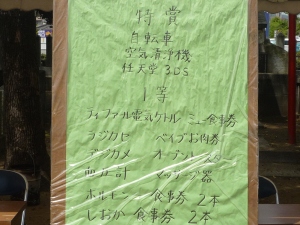 特賞
自転車
空気清浄機
任天堂3DS
1等
ティファール電気ケトル 食事券
ラジカセ お肉券
デジカメ オーブン
血圧計 マッサージ器
ホルモン 食事券 2本
しおか 食事券 2本